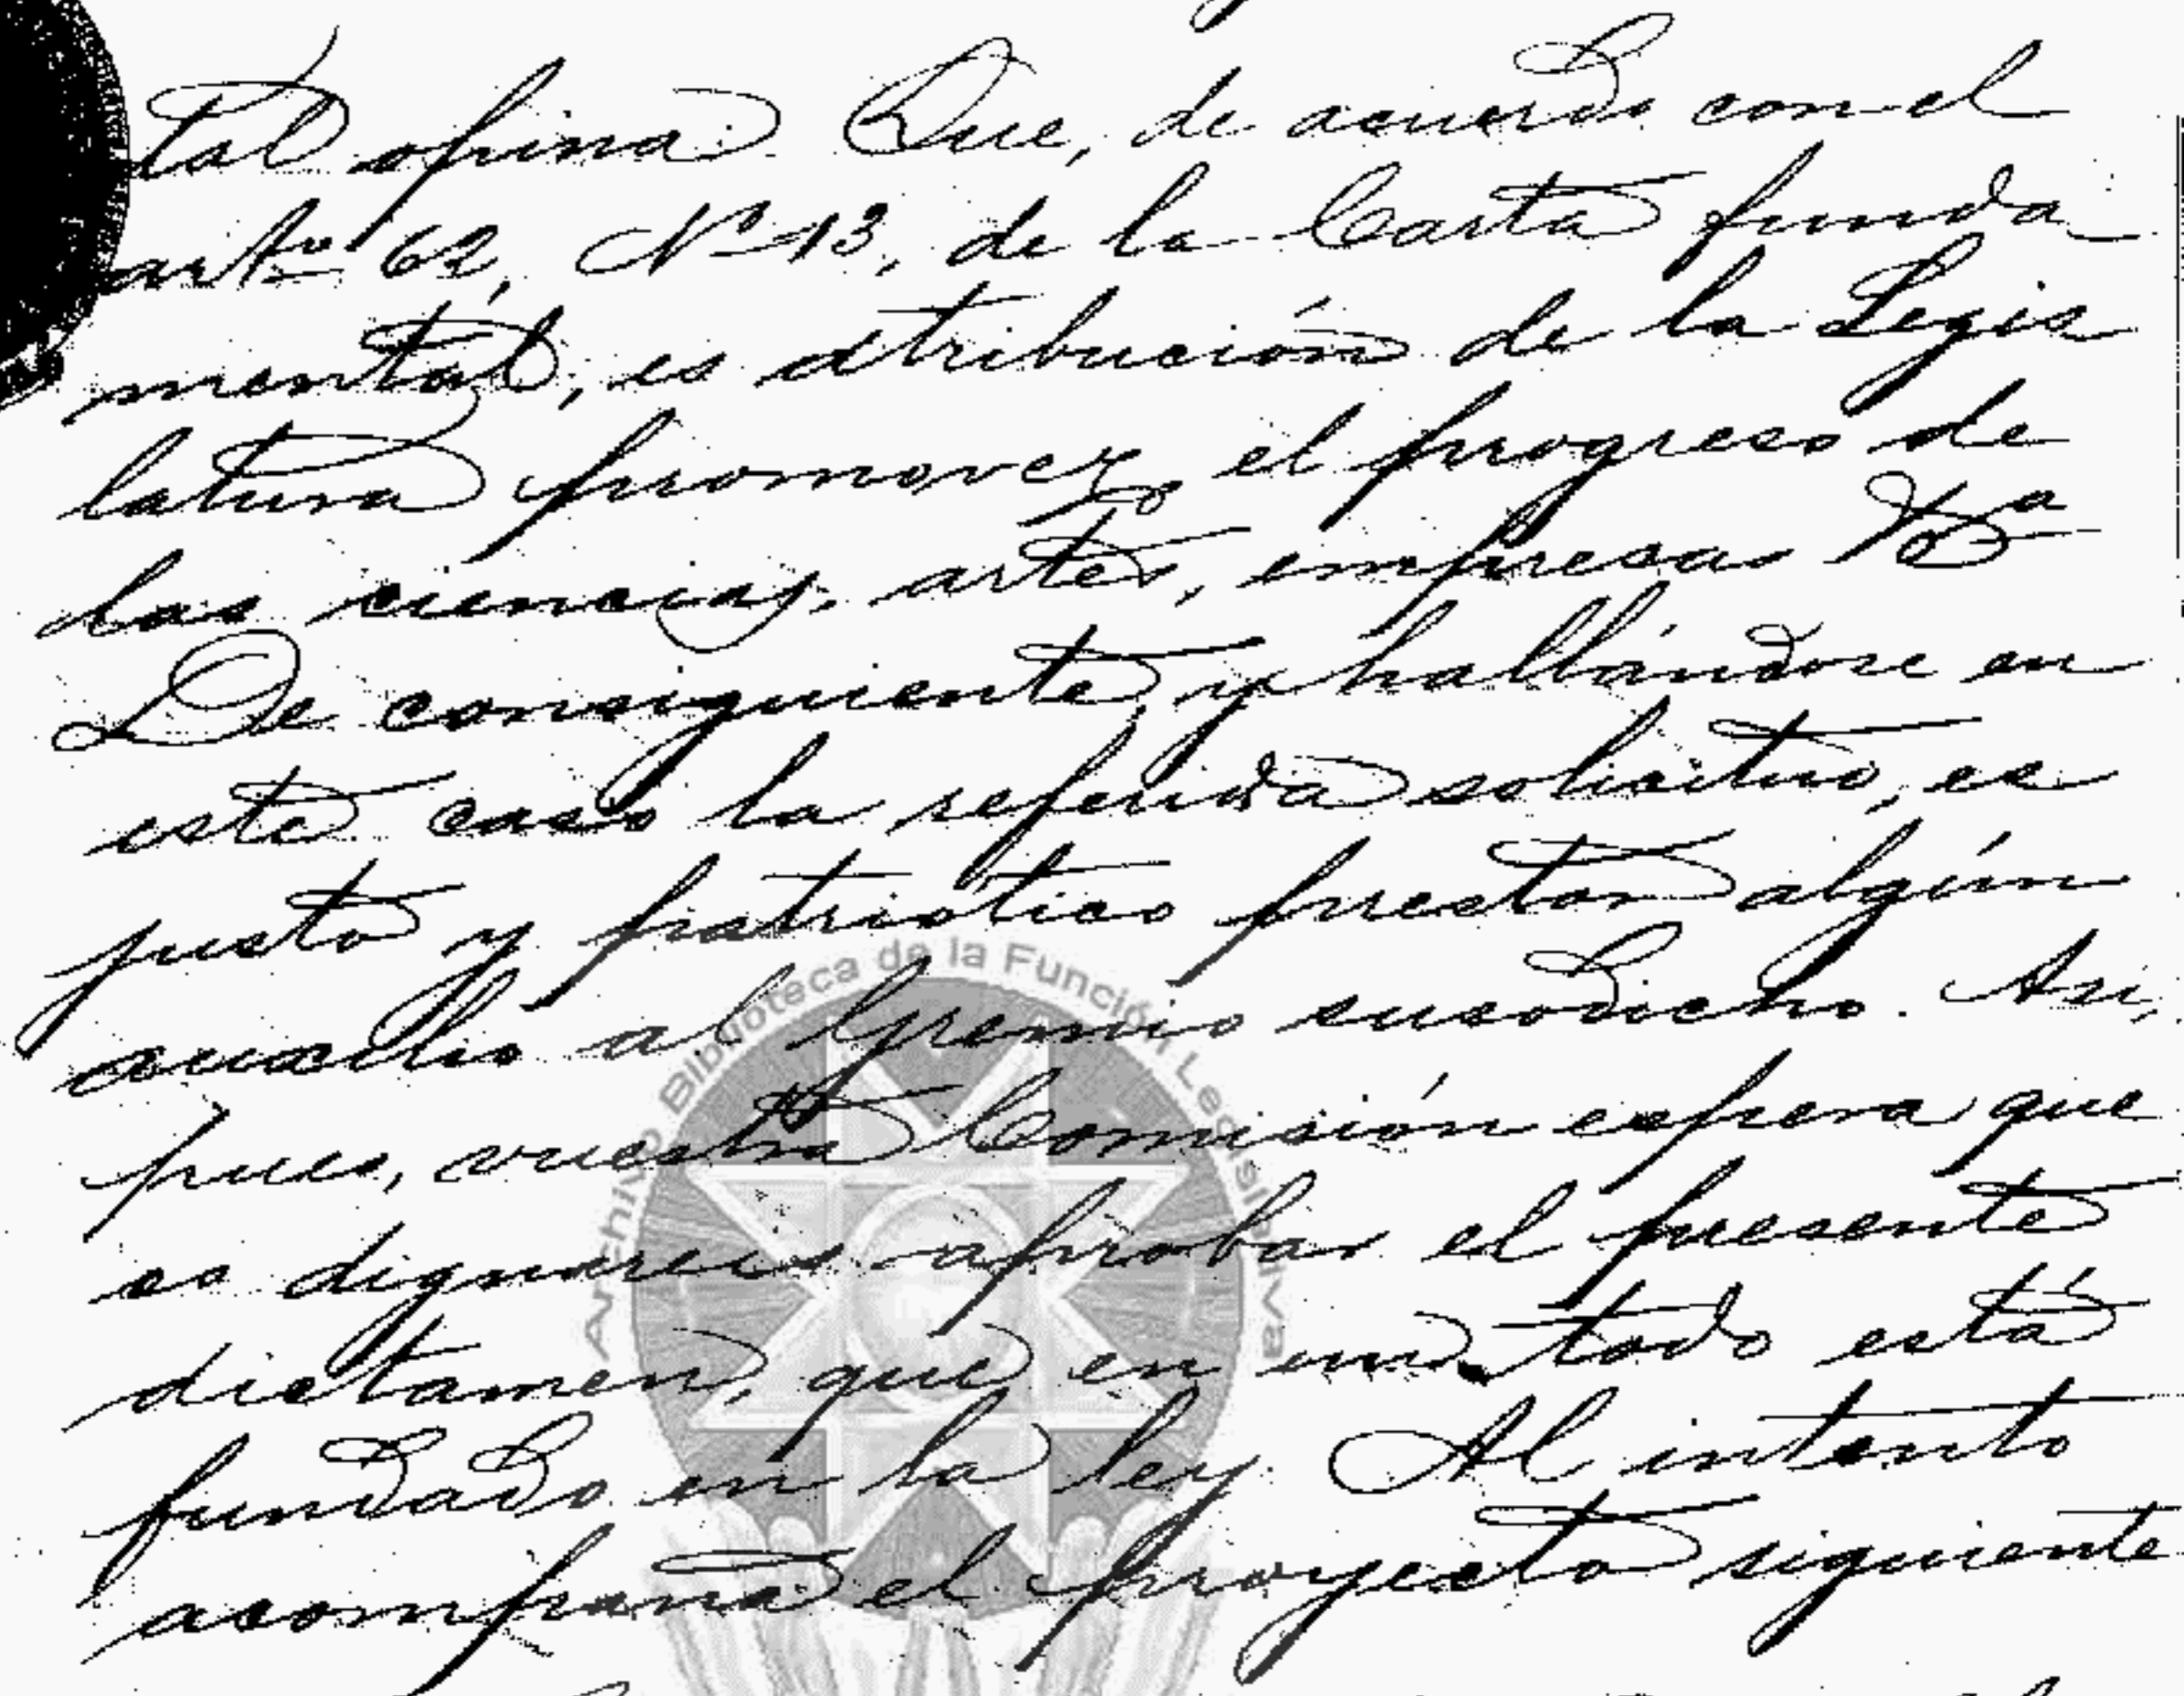 tal opina: Que, de acuerdo con el
arto 62, No 13, de la Carta funda
mental, es atribución de la Legis
latura promover el progreso de
las ciencias, artes, empresas &a
De consiguiente, y hallándose en
este caso la referida solicitud, es
justo y patriotico prestar algún
auxilio al Gremio susodicho. Asi,
pues, vuestra Comisión espera que
os dignareis aprobar el presente
dictamen, que en un todo está
fundado en la ley. Al intento
acompaña el proyecto siguiente
Archivo Biblioteca de la Función Legislativa